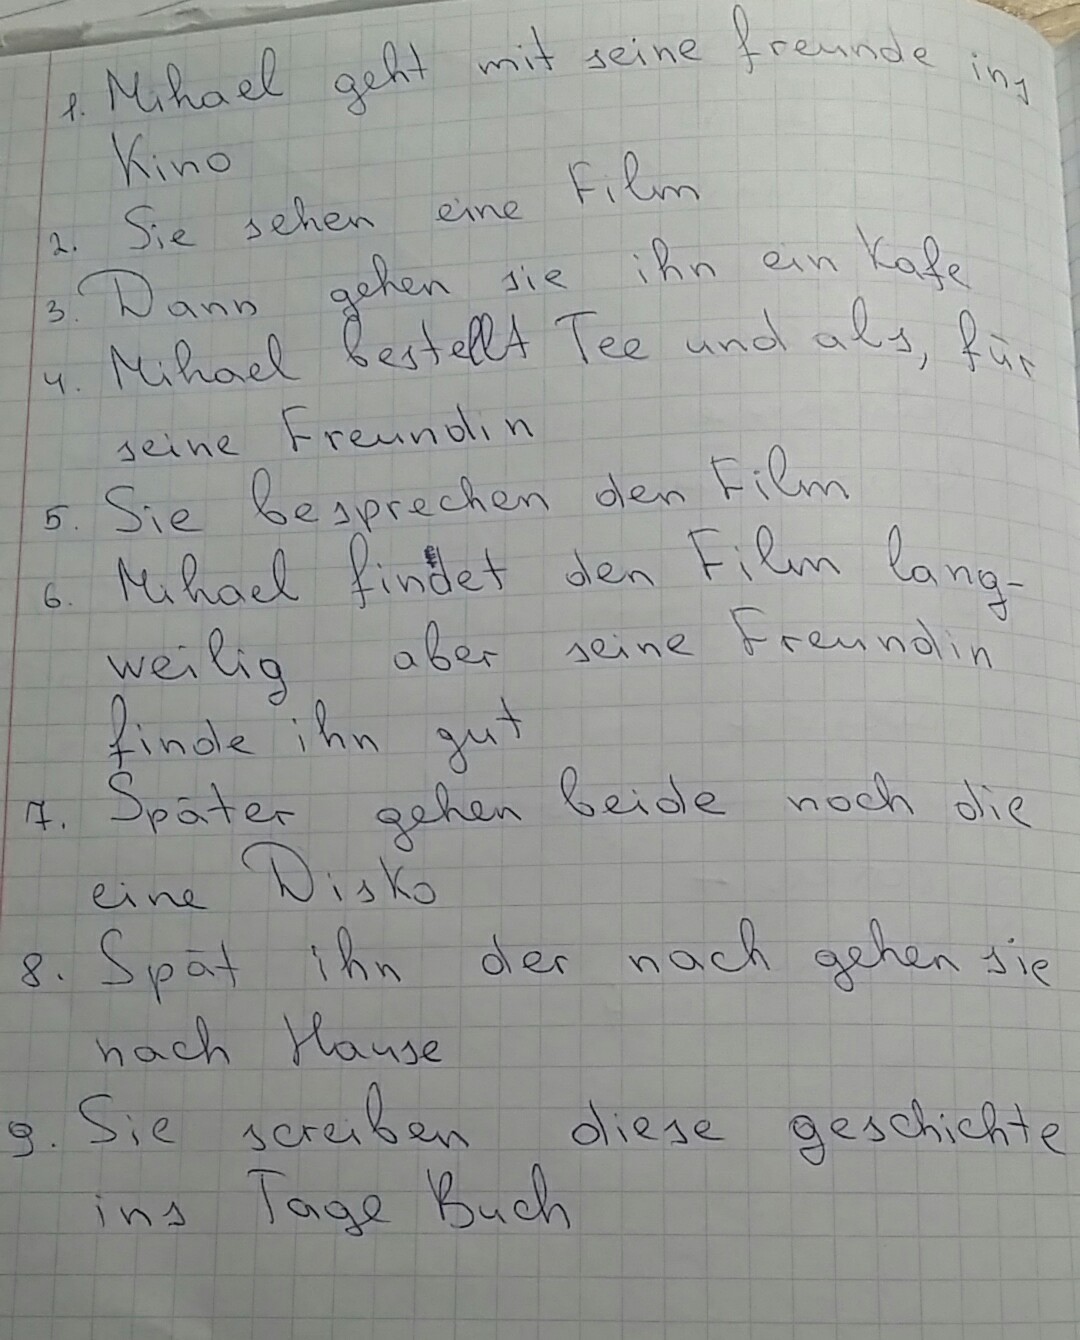 1. Mihael geht mit seine freunde ins
Kino
2. Sie sehen eine Film
3. Dann gehen sie ihn ein Kafe
4. Mihael bestellt Tee und als, für
seine Freundin
5. Sie besprechen den Film
6. Mihael findet den Film lang-
weilig aber seine Freundin
finde ihn gut
7. Später gehen beide noch die
eine Disko
8. Spät ihn der nach gehen sie
nach Hause
9. Sie screiben diese geschichte
ins Tage Buch